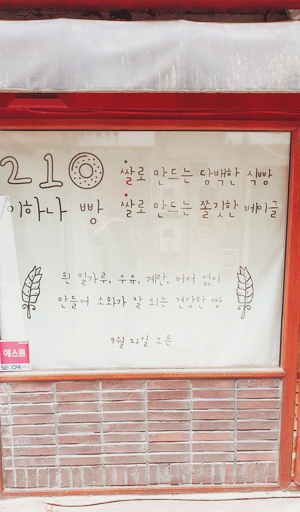 210 쌀로 만드는 담백한 식빵
이하나 빵 쌀로 만드는 쫄깃한 베이글
흰 밀가루, 우유, 계란, 버터 없이
만들어 소화가 잘 되는 건강한 빵
9월 21일 오픈
에스원
SECOM